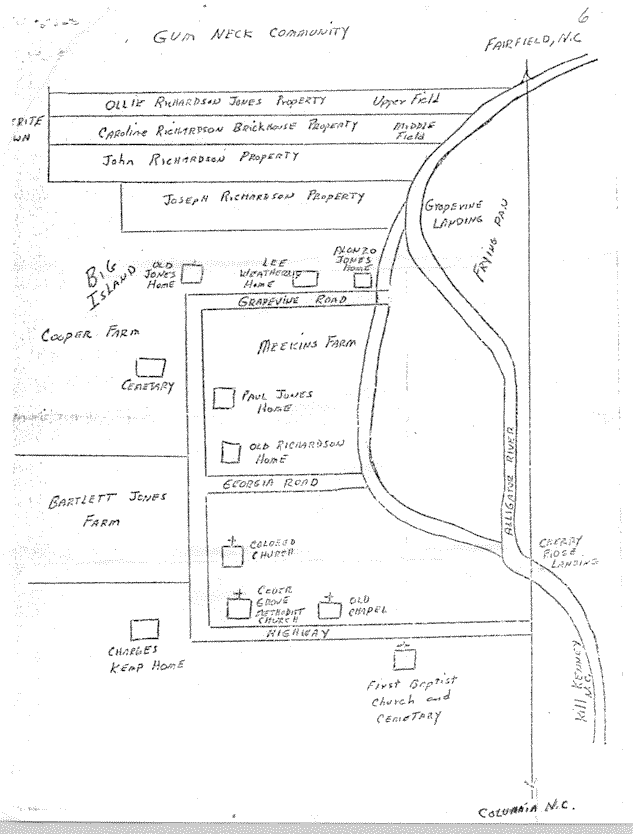 6
GUM NECK COMMUNITY
FAIRFIELD, N.C
OLLIE RICHARDSON JONES PROPERTY Upper Field
RITE
WN
CAROLINE RICHARDSON BRICKHOUSE PROPERTY MIDDLE
Field
John RICHARDSON PROPERTY
JOSEPH RICHARDSON PROPERTY
GRAPEVINE
LANDING
FRYING PAN
BIG
ISLAND
OLD
JONES
HOME
LEE
HOME
ALONZO
JONES
HOME
GRAPEVINE ROAD
COOPER FARM
MEEKINS FARM
CEMETARY
PAUL JONES
HOME
OLD RICHARDSON
HOME
GEORGIA ROAD
BARTLETT JONES
FARM
ALLIGATOR RIVER
COLORED
CHURCH
CHERRY
RIDGE
LANDING
CEDER
GROVE
METHODIST
CHURCH
OLD
CHAPEL
HIGHWAY
CHARLES
KEMP HOME
First Baptist
Church and
CEMETARY
Kill KENNEY
N.C.
COLUMBIA N.C.